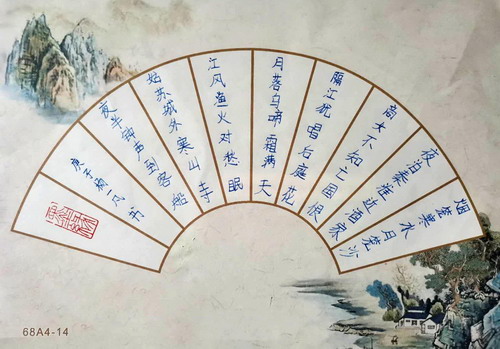 烟笼寒水月笼沙
夜泊秦淮近酒家
商女不知亡国恨
隔江犹唱后庭花
月落乌啼霜满天
江风渔火对愁眠
姑苏城外寒山寺
夜半钟声到客船
庚子 书
68A4-14